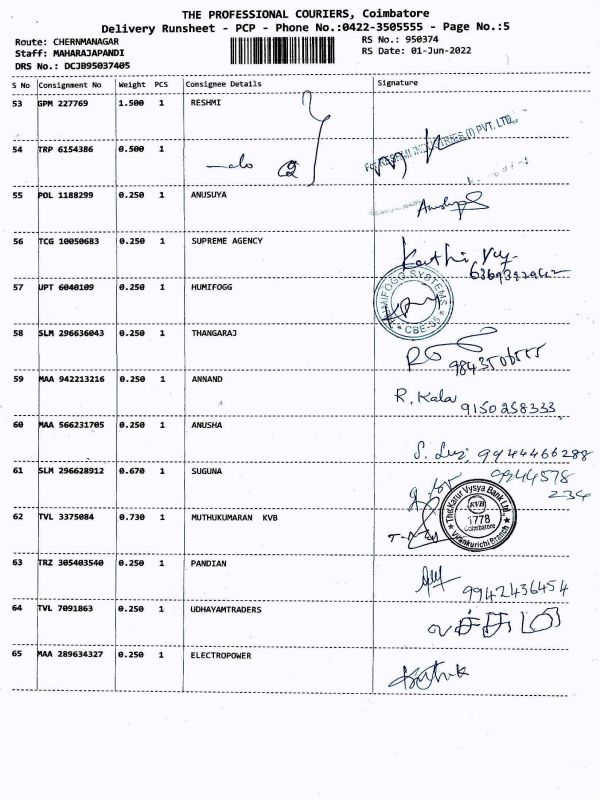 THE PROFESSIONAL COURIERS, Coimbatore
Delivery Runsheet - PCP - Phone No.:0422-3505555 - Page No.:5
Route: CHERNMANAGAR RS No.: 950374
Staff: MAHARAJAPANDI RS Date: 01-Jun-2022
DRS No.: DCJB95037405
S No Consignment No Weight PCS Consignee Details Signature
53 GPM 227769 1.500 1 RESHMI
PVT. LTD.
54 TRP 6154386 0.500 1
55 POL 1188299 0.250 1 ANUSUYA
56 TCG 10050683 0.250 1 SUPREME AGENCY
57 UPT 6040109 0.250 1 HUMIFOGG
HUMIFOGG SYSTEMS
CBE-35
58 SLM 296636043 0.250 1 THANGARAJ
59 MAA 942213216 0.250 1 ANNAND
R. Kala
9150258333
60 MAA 566231705 0.250 1 ANUSHA
9944466288
61 SLM 296628912 0.670 1 SUGUNA
9944578
234
62 TVL 3375084 0.730 1 MUTHUKUMARAN KVB
The Karur Vysya Bank Ltd.
KVB
1778
Coimbatore
63 TRZ 305403540 0.250 1 PANDIAN
9942436454
64 TVL 7091863 0.250 1 UDHAYAMTRADERS
65 MAA 289634327 0.250 1 ELECTROPOWER